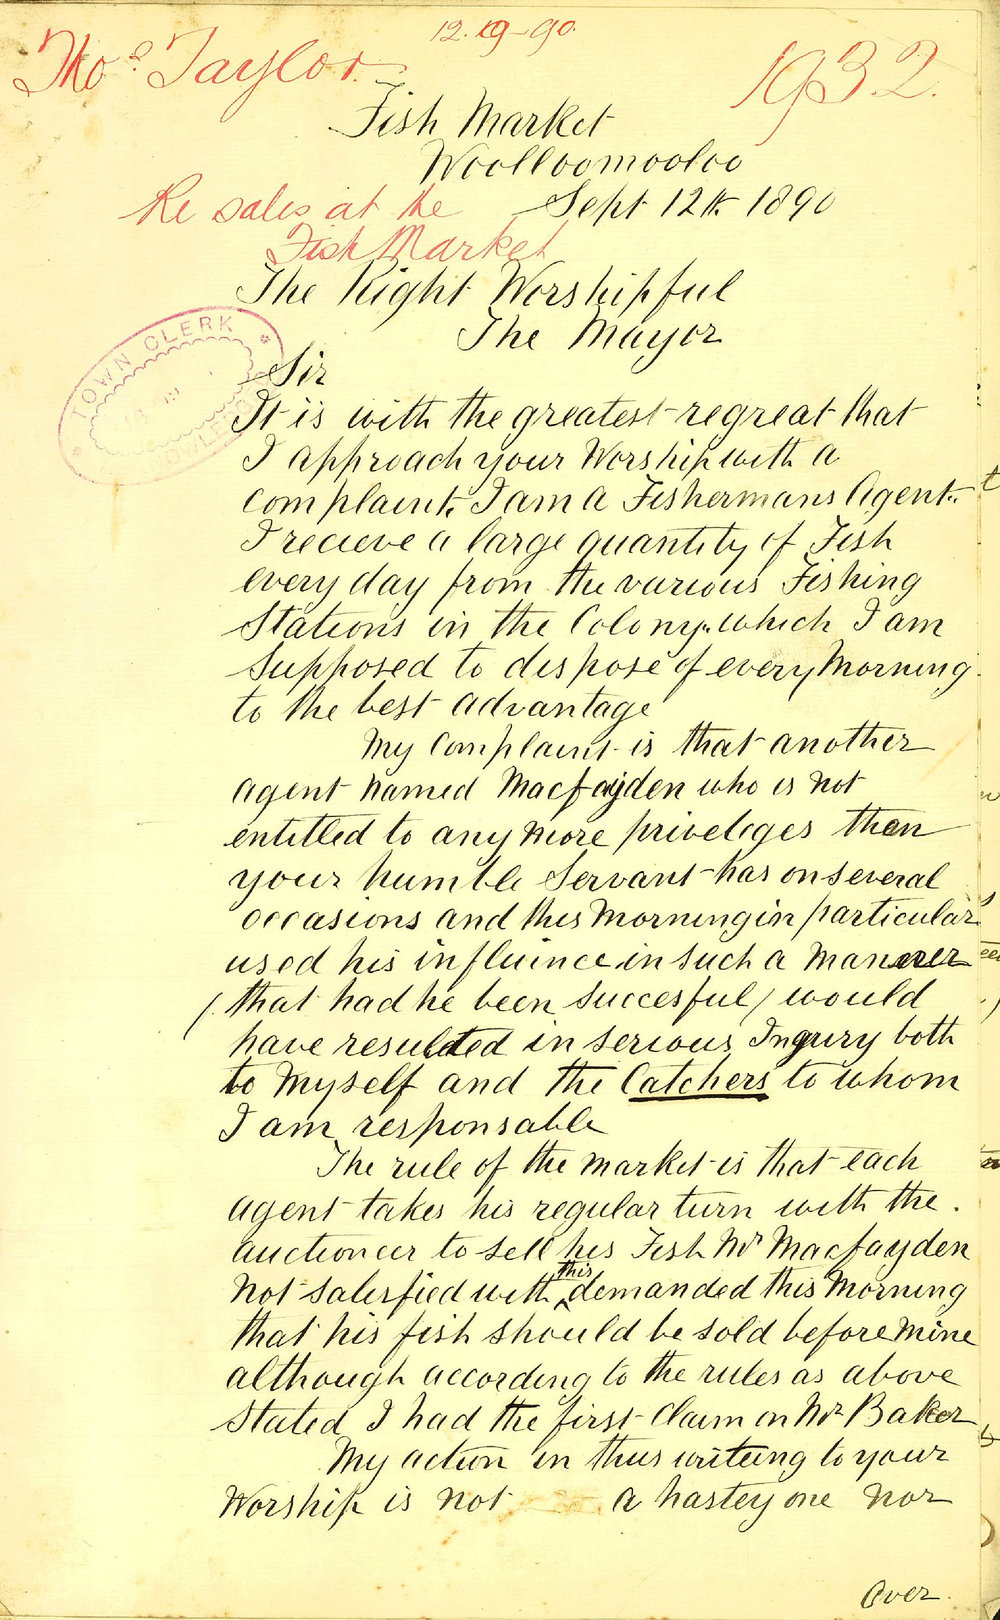 12.9-90.
Thos. Taylor.
1932.
Fish Market
Woolloomooloo
Re sales at the
Fish Market
Sept 12th 1890
The Right Worshipful
The Mayor
TOWN CLERK
Sir
It is with the greatest regreat that
I approach your Worship with a
complaint. I am a Fishermans Agent.
I recieve a large quantity of Fish
every day from the various Fishing
Stations in the Colony. which I am
supposed to dispose of every Morning
to the best advantage
My Complaint is that another
agent Named Macfayden who is not
entitled to any more priveleges than
your humble Servant has on several
occasions and this Morning in particular
used his influince in such a manner
(that had he been succesful) would
have resulted in serious Ingury both
to Myself and the Catchers to whom
I am responsable
The rule of the market is that each
agent takes his regular turn with the.
auctioneer to sell his Fish Mr Macfayden
Not satisfied with this demanded this Morning
that his fish should be sold before Mine
although according to the rules as above
stated I had the first Claim on Mr Baker
My action in thus writing to your
Worship is not a hastey one nor
Over.